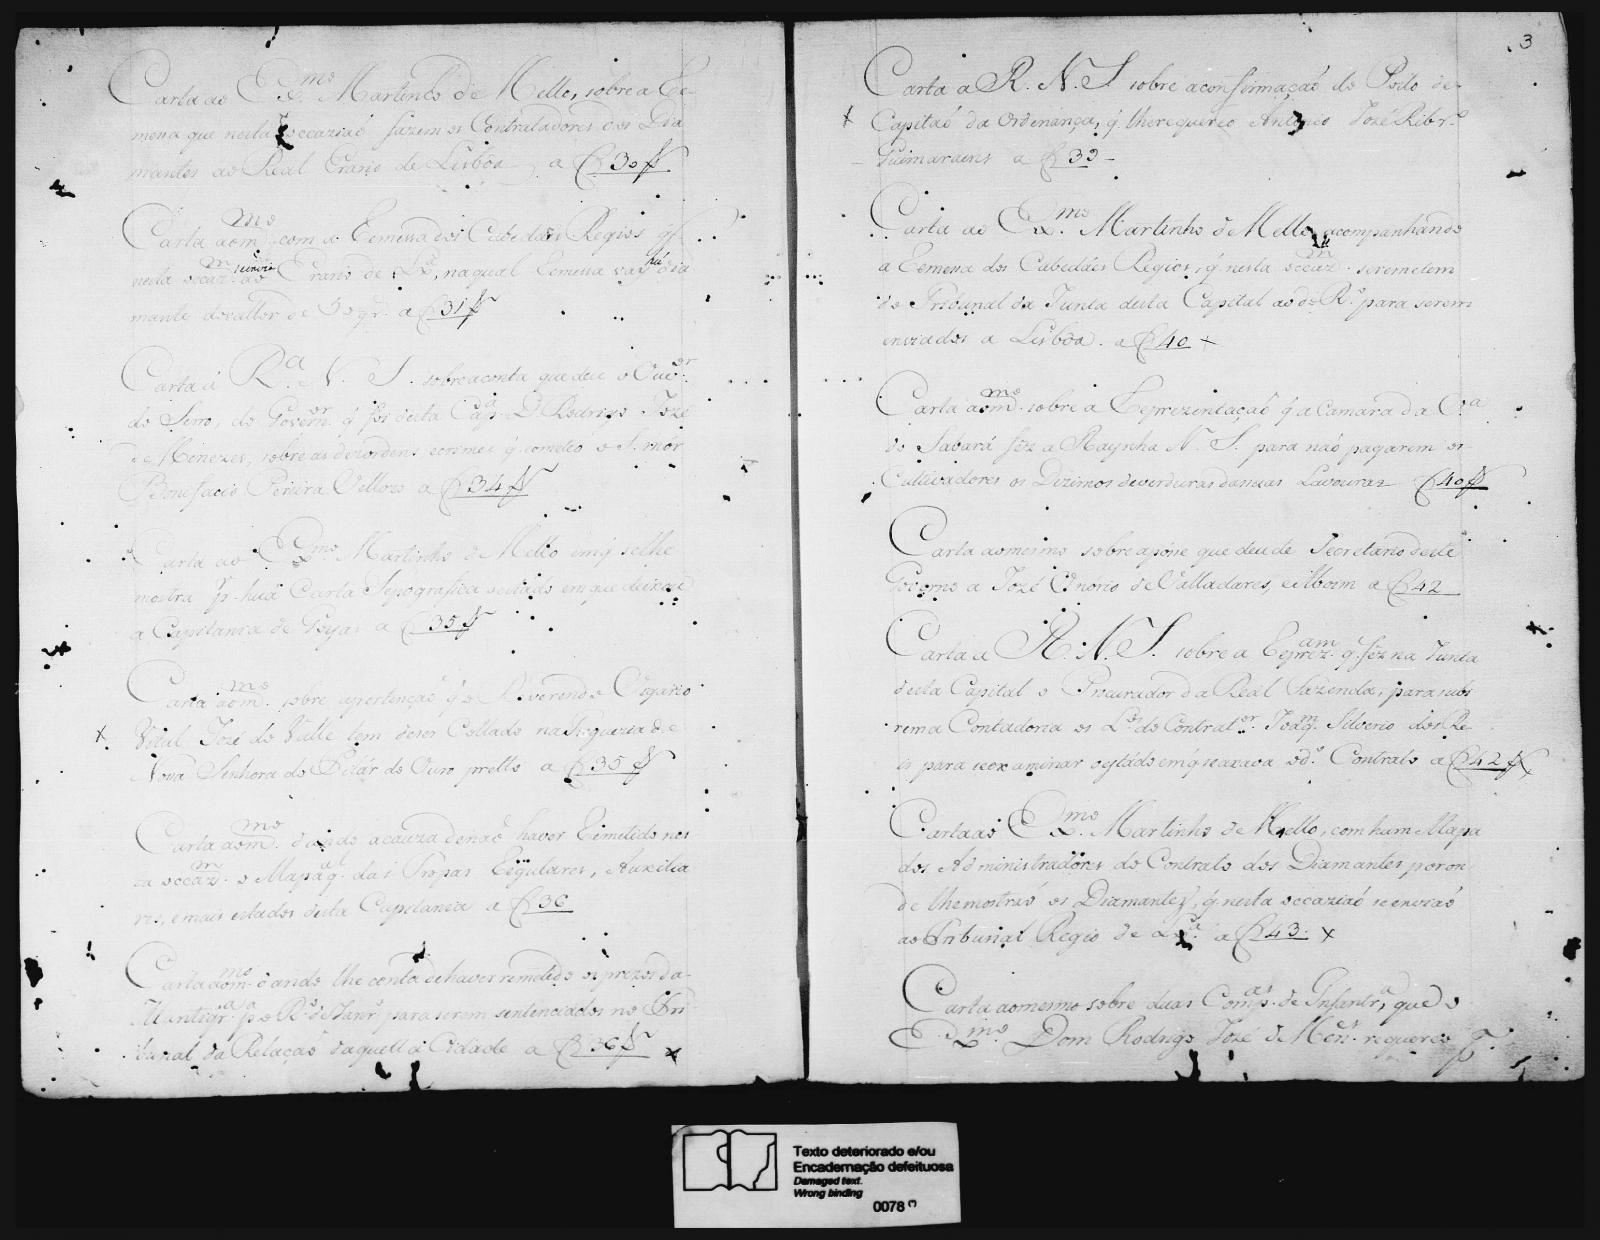 Carta ao Exmo Martinho de Mello, sobre a Re-
messa que nesta occaziaõ fazem os Contratadores dos Dia
mantes ao Real Erario de Lisboa a f 30 v
Carta ao mmo com a Remessa dos Cabedaes Regios q
nesta occazm se envia ao Erario de Lxa, na qual Remessa vay hũ dia
mante do vallor de 30 qr. a f 31 v
Carta á Ra. N. S. sobre a conta que deu o Ouvor
do Serro, do Governor q foi desta Capa D. Rodrigo Jozé
de Menezes, sobre as dezordens, e crimes q cometeo o S. mór
Bonifacio Pereira Vellozo a f 34 v
Carta ao Exmo Martinho de Mello em q se lhe
mostra pr huã Carta Topografica o estádo em que deixou
a Capitania de Goyas a f 35 v
Carta ao mmo sobre a pertençaõ q o Reverendo Vigario
Vital Jozé do Valle tem de ser Collado na Freguezia de
Nossa Senhora do Pilár do Ouro pretto a f 35 v
Carta ao mmo dando a cauza de naõ haver Remetido nes
ta occazm o Mapa gal das Tropas Regulares, Auxilia
res, e mais estados desta Capitania a f 36
Carta ao mmo dando lhe conta de haver remetido os prezos da
Mantigra pa o Ro de Janro para serem sentenciados no Tri-
bunal da Relaçaõ daquella Cidade a f 36 v
3
Carta a R. N. S. sobre a confirmaçaõ do Posto de
Capitaõ da Ordenança, q lhe requereo Antonio Jozé Ribro
Guimaraens a f 39
Carta ao Exmo Martinho de Mello acompanhando
a Remessa dos Cabedáes Regios, q nesta occazm se remetem
do Tribunal da Junta desta Capital ao do Ro para serem
enviados a Lisboa. a f 40
Carta ao mmo sobre a Reprezentaçaõ q a Camara da Va
do Sabará fez a Raynha N. S. para naõ pagarem os
Cultivadores os Dizimos de verduras das suas Lavouras f 40 v
Carta ao mesmo sobre a posse que deu de Secretario deste
Governo a Jozé Onorio de Valladares, e Aboim a f 42
Carta a R. N. S. sobre a Reprezam q fez na Junta
desta Capital o Procurador da Real Fazenda, para subi
rem a Contadoria os Los do Contrator Joaqm Silverio dos Re
is para se examinar o estádo em q se axava o do Contrato a f 42 v
Carta ao Exmo Martinho de Mello, com hum Mapa
dos Administradores do Contrato dos Diamantes por on
de lhe mostraõ os Diamantes, q nesta occaziaõ se enviaõ
ao Tribunal Regio de Lxa a f 43
Carta ao mesmo sobre duas Compas de Infantra, que o
Exmo Dom Rodrigo Jozé de Mens requereo
Texto deteriorado e/ou
Encadernação defeituosa
Damaged text.
Wrong binding
0078